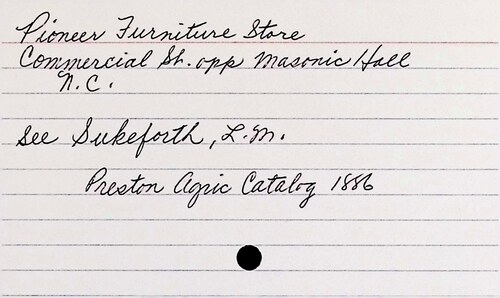 Pioneer Furniture Store
Commercial St. opp Masonic Hall
N.C.
See Sukeforth, L.M.
Preston Agric Catalog 1886